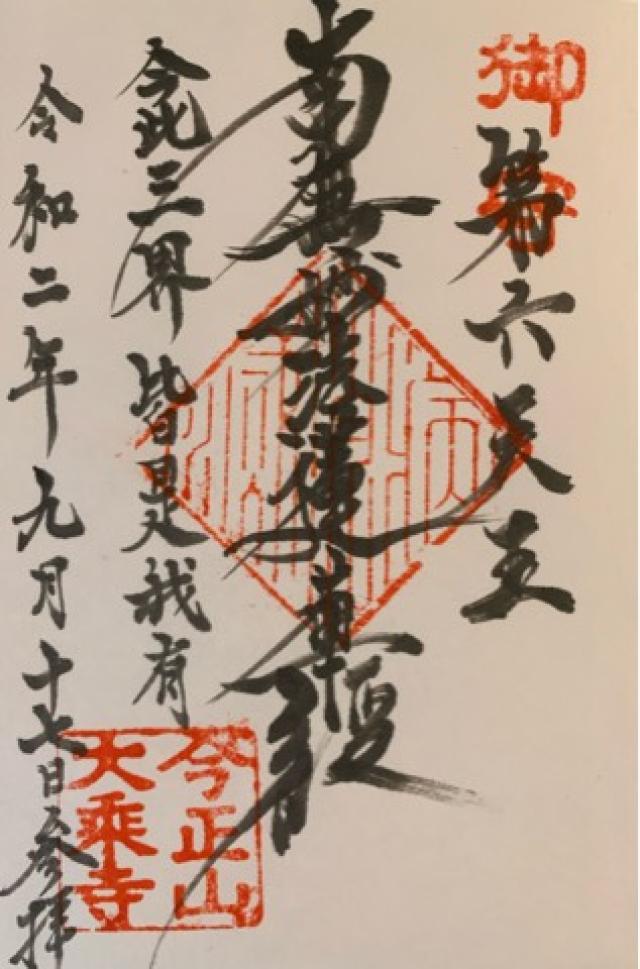 御
第六天王
南無妙法蓮華經
今此三界 皆是我有
令和二年九月十七日参拝
今正山
大乗寺